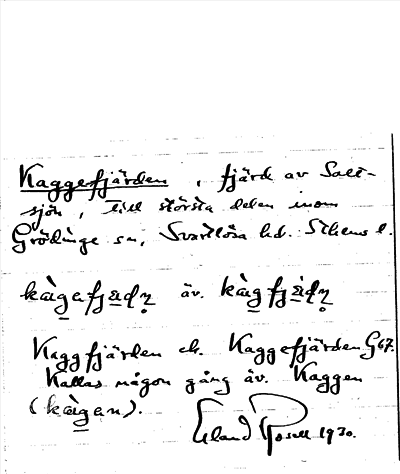 Kaggefjärden, fjärd av Salt-
sjön, till största delen inom
Grödinge sn, Svartlösa hd. Sthems l.
kàgafjädn äv. kàgfjädn
Kaggfjärden ek. Kaggefjärden G67.
Kallas någon gång äv. Kaggen
(kàgan).
Erland Rosell 1930.